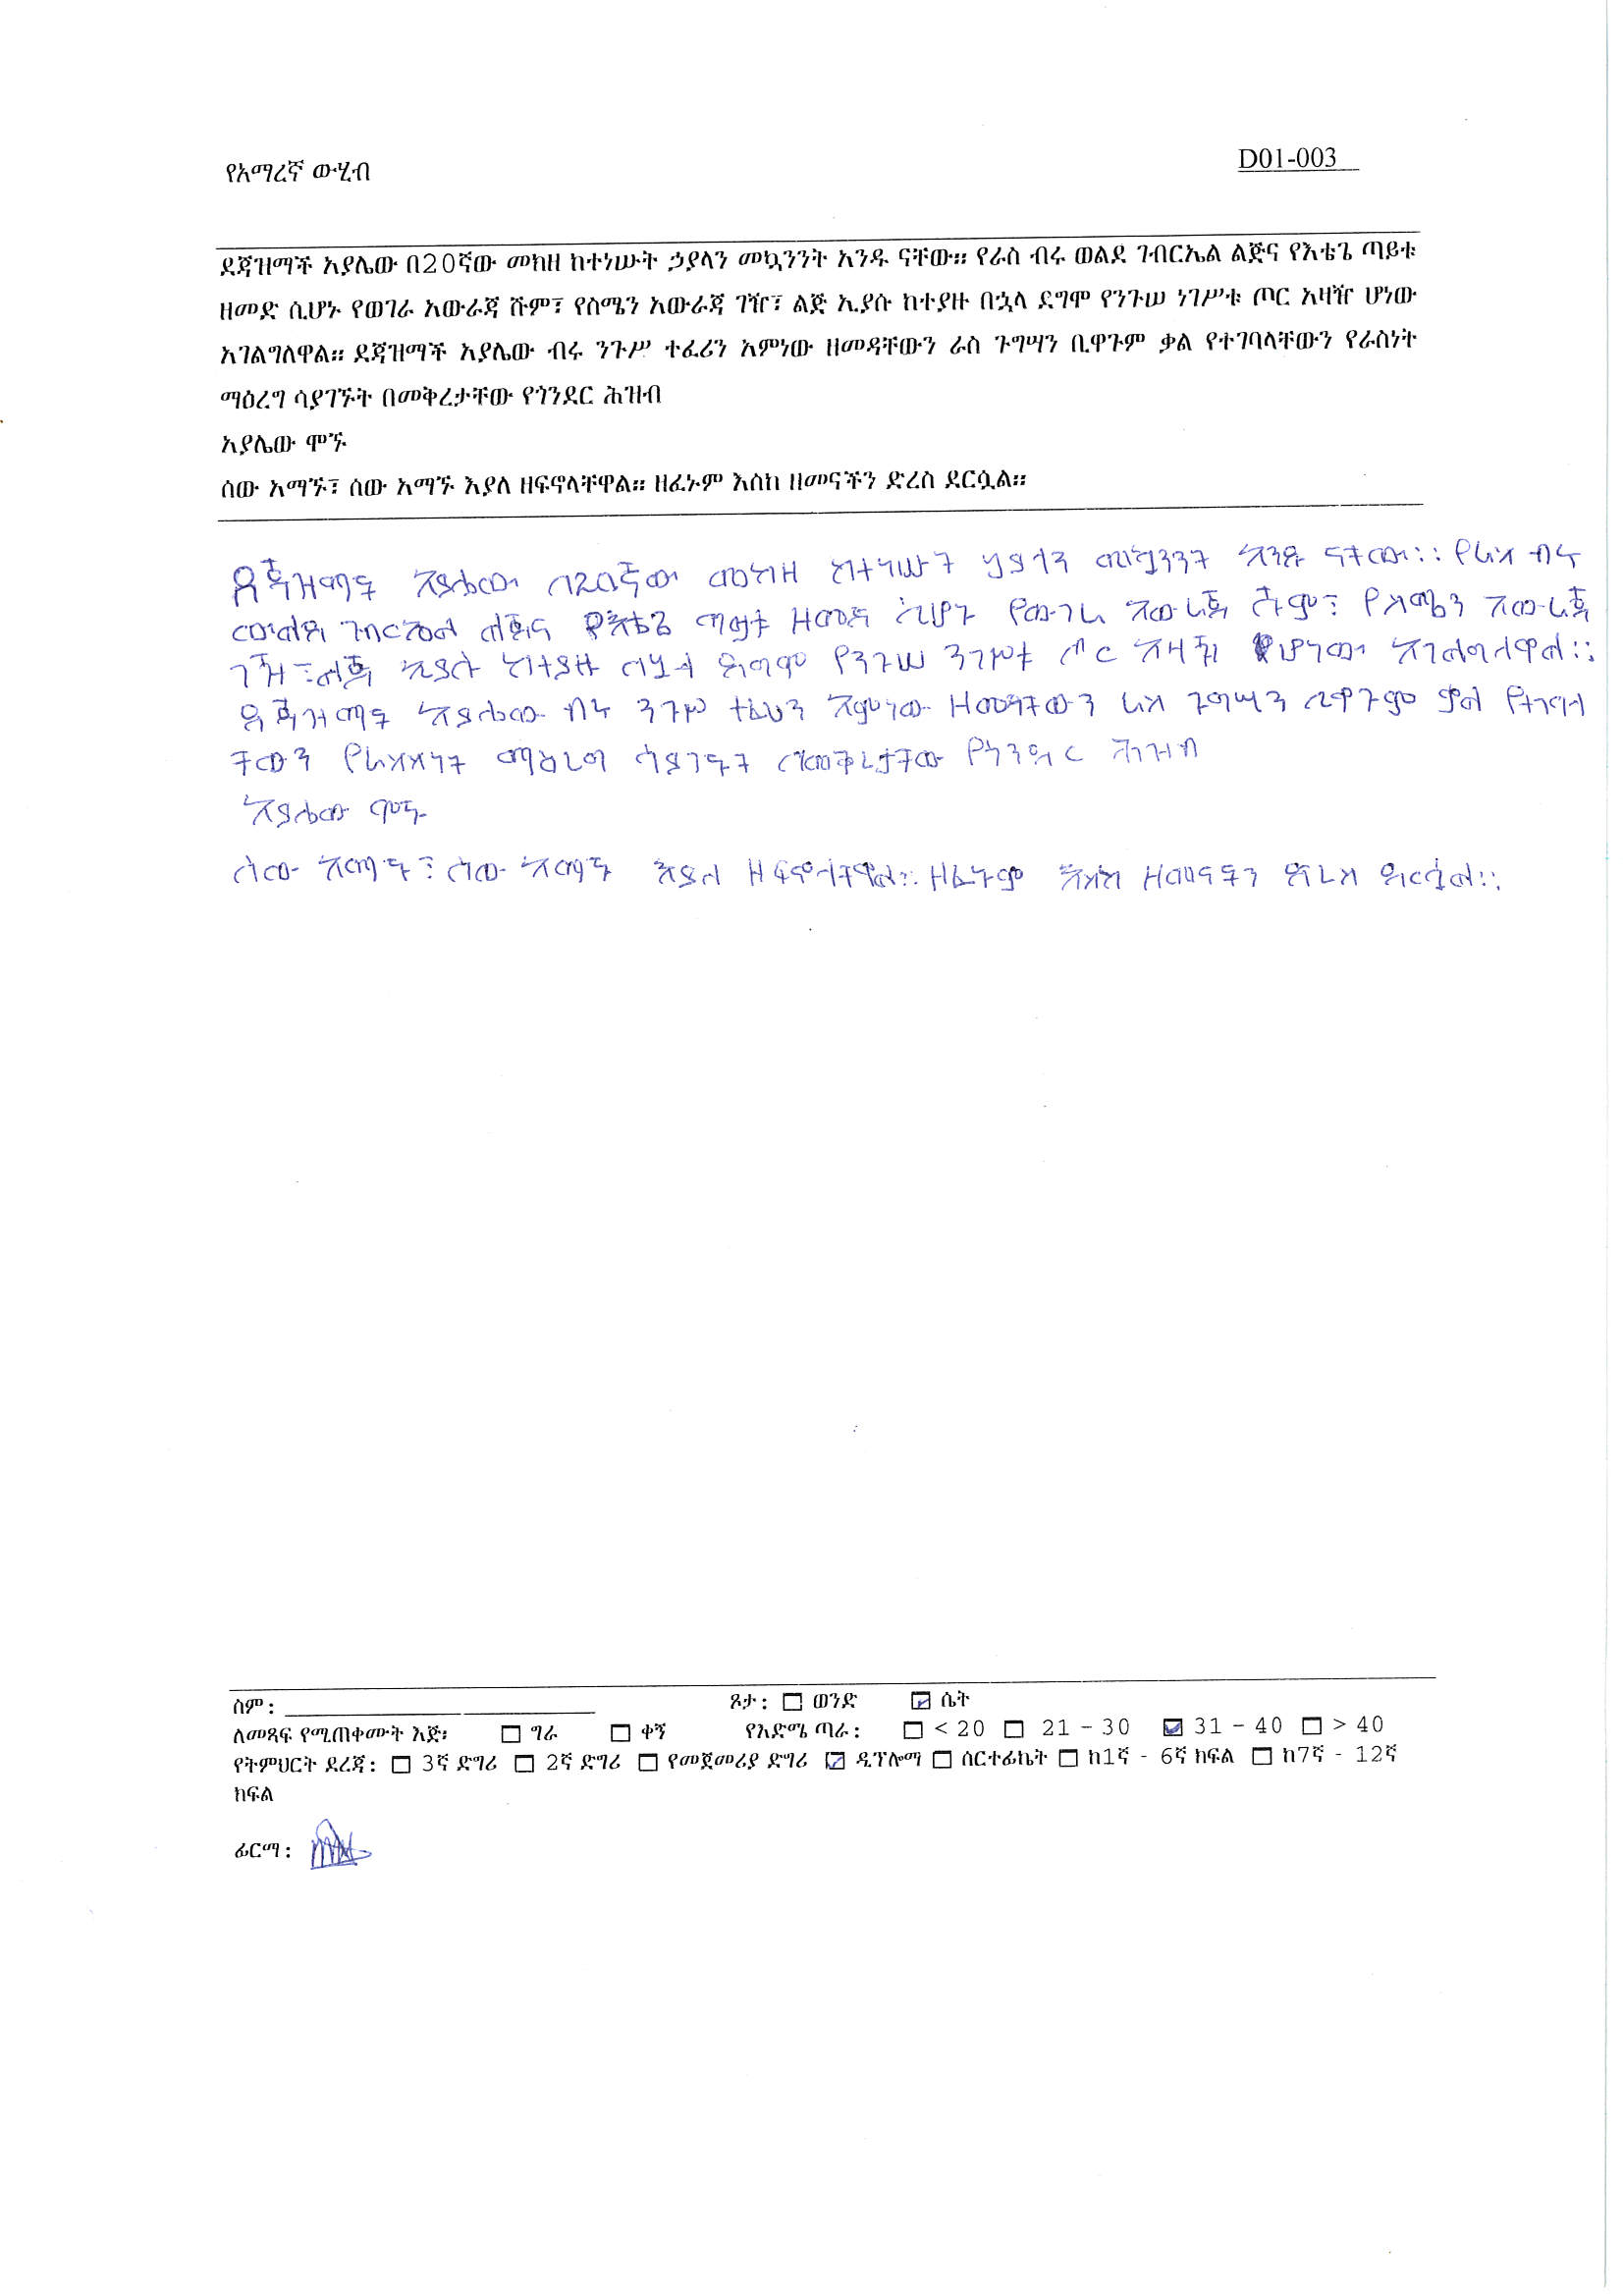 የአማረኛ ውሂብ
D01-003
ደጃዝማች አያሌው በ20ኛው መክዘ ከተነሡት ኃያላን መኳንንት አንዱ ናቸው። የራስ ብሩ ወልደ ገብርኤል ልጅና የእቴጌ ጣይቱ
ዘመድ ሲሆኑ የወገራ አውራጃ ሹም፣ የስሜን አውራጃ ገዥ፣ ልጅ ኢያሱ ከተያዙ በኋላ ደግሞ የንጉሠ ነገሥቱ ጦር አዛዥ ሆነው
አገልግለዋል። ደጃዝማች አያሌው ብሩ ንጉሥ ተፈሪን አምነው ዘመዳቸውን ራስ ጉግሣን ቢዋጉም ቃል የተገባላቸውን የራስነት
ማዕረግ ሳያገኙት በመቅረታቸው የጎንደር ሕዝብ
አያሌው ሞኙ
ሰው አማኙ፣ ሰው አማኙ እያለ ዘፍኖላቸዋል። ዘፈኑም እስከ ዘመናችን ድረስ ደርሷል።
ደጃዝማች አያሌው በ20ኛው መክዘ ከተነሡት ኃያላን መኳንንት አንዱ ናቸው። የራስ ብሩ
ወልደ ገብርኤል ልጅና የእቴጌ ጣይቱ ዘመድ ሲሆኑ የውገራ አውራጃ ሹም፣ የስሜን አውራጃ
ገዥ፣ ልጅ ኢያሱ ከተያዙ በኋላ ደግሞ የንጉሠ ንገሥቱ ጦር አዛዥ ሆነው አገልግለዋል።
ደጃዝማች አያሌው ብሩ ንጉሥ አምነው ዘመዳቸውን ራስ ጉግሣን ቢዋጉም ቃል የተገባላ
ቸውን የራስስነት ማዕረግ ሳያገኙት በመቅረታቸው የጎንደር ሕዝብ
አያሌው ሞኙ
ሰው አማኙ፣ ሰው አማኙ እያለ ዘፍኖላቸዋል። ዘፈኑም እስከ ዘመናችን ድረስ ደርሷል።
ስም: ጾታ: ☐ ወንድ ☑ ሴት
ለመጻፍ የሚጠቀሙት እጅ፡ ☐ ግራ ☐ ቀኝ የእድሜ ጣራ: ☐ < 20 ☐ 21 – 30 ☑ 31 – 40 ☐ > 40
የትምህርት ደረጃ: ☐ 3ኛ ድግሪ ☐ 2ኛ ድግሪ ☐ የመጀመሪያ ድግሪ ☑ ዲፕሎማ ☐ ሰርተፊኬት ☐ ከ1ኛ - 6ኛ ክፍል ☐ ከ7ኛ - 12ኛ
ክፍል
ፊርማ: